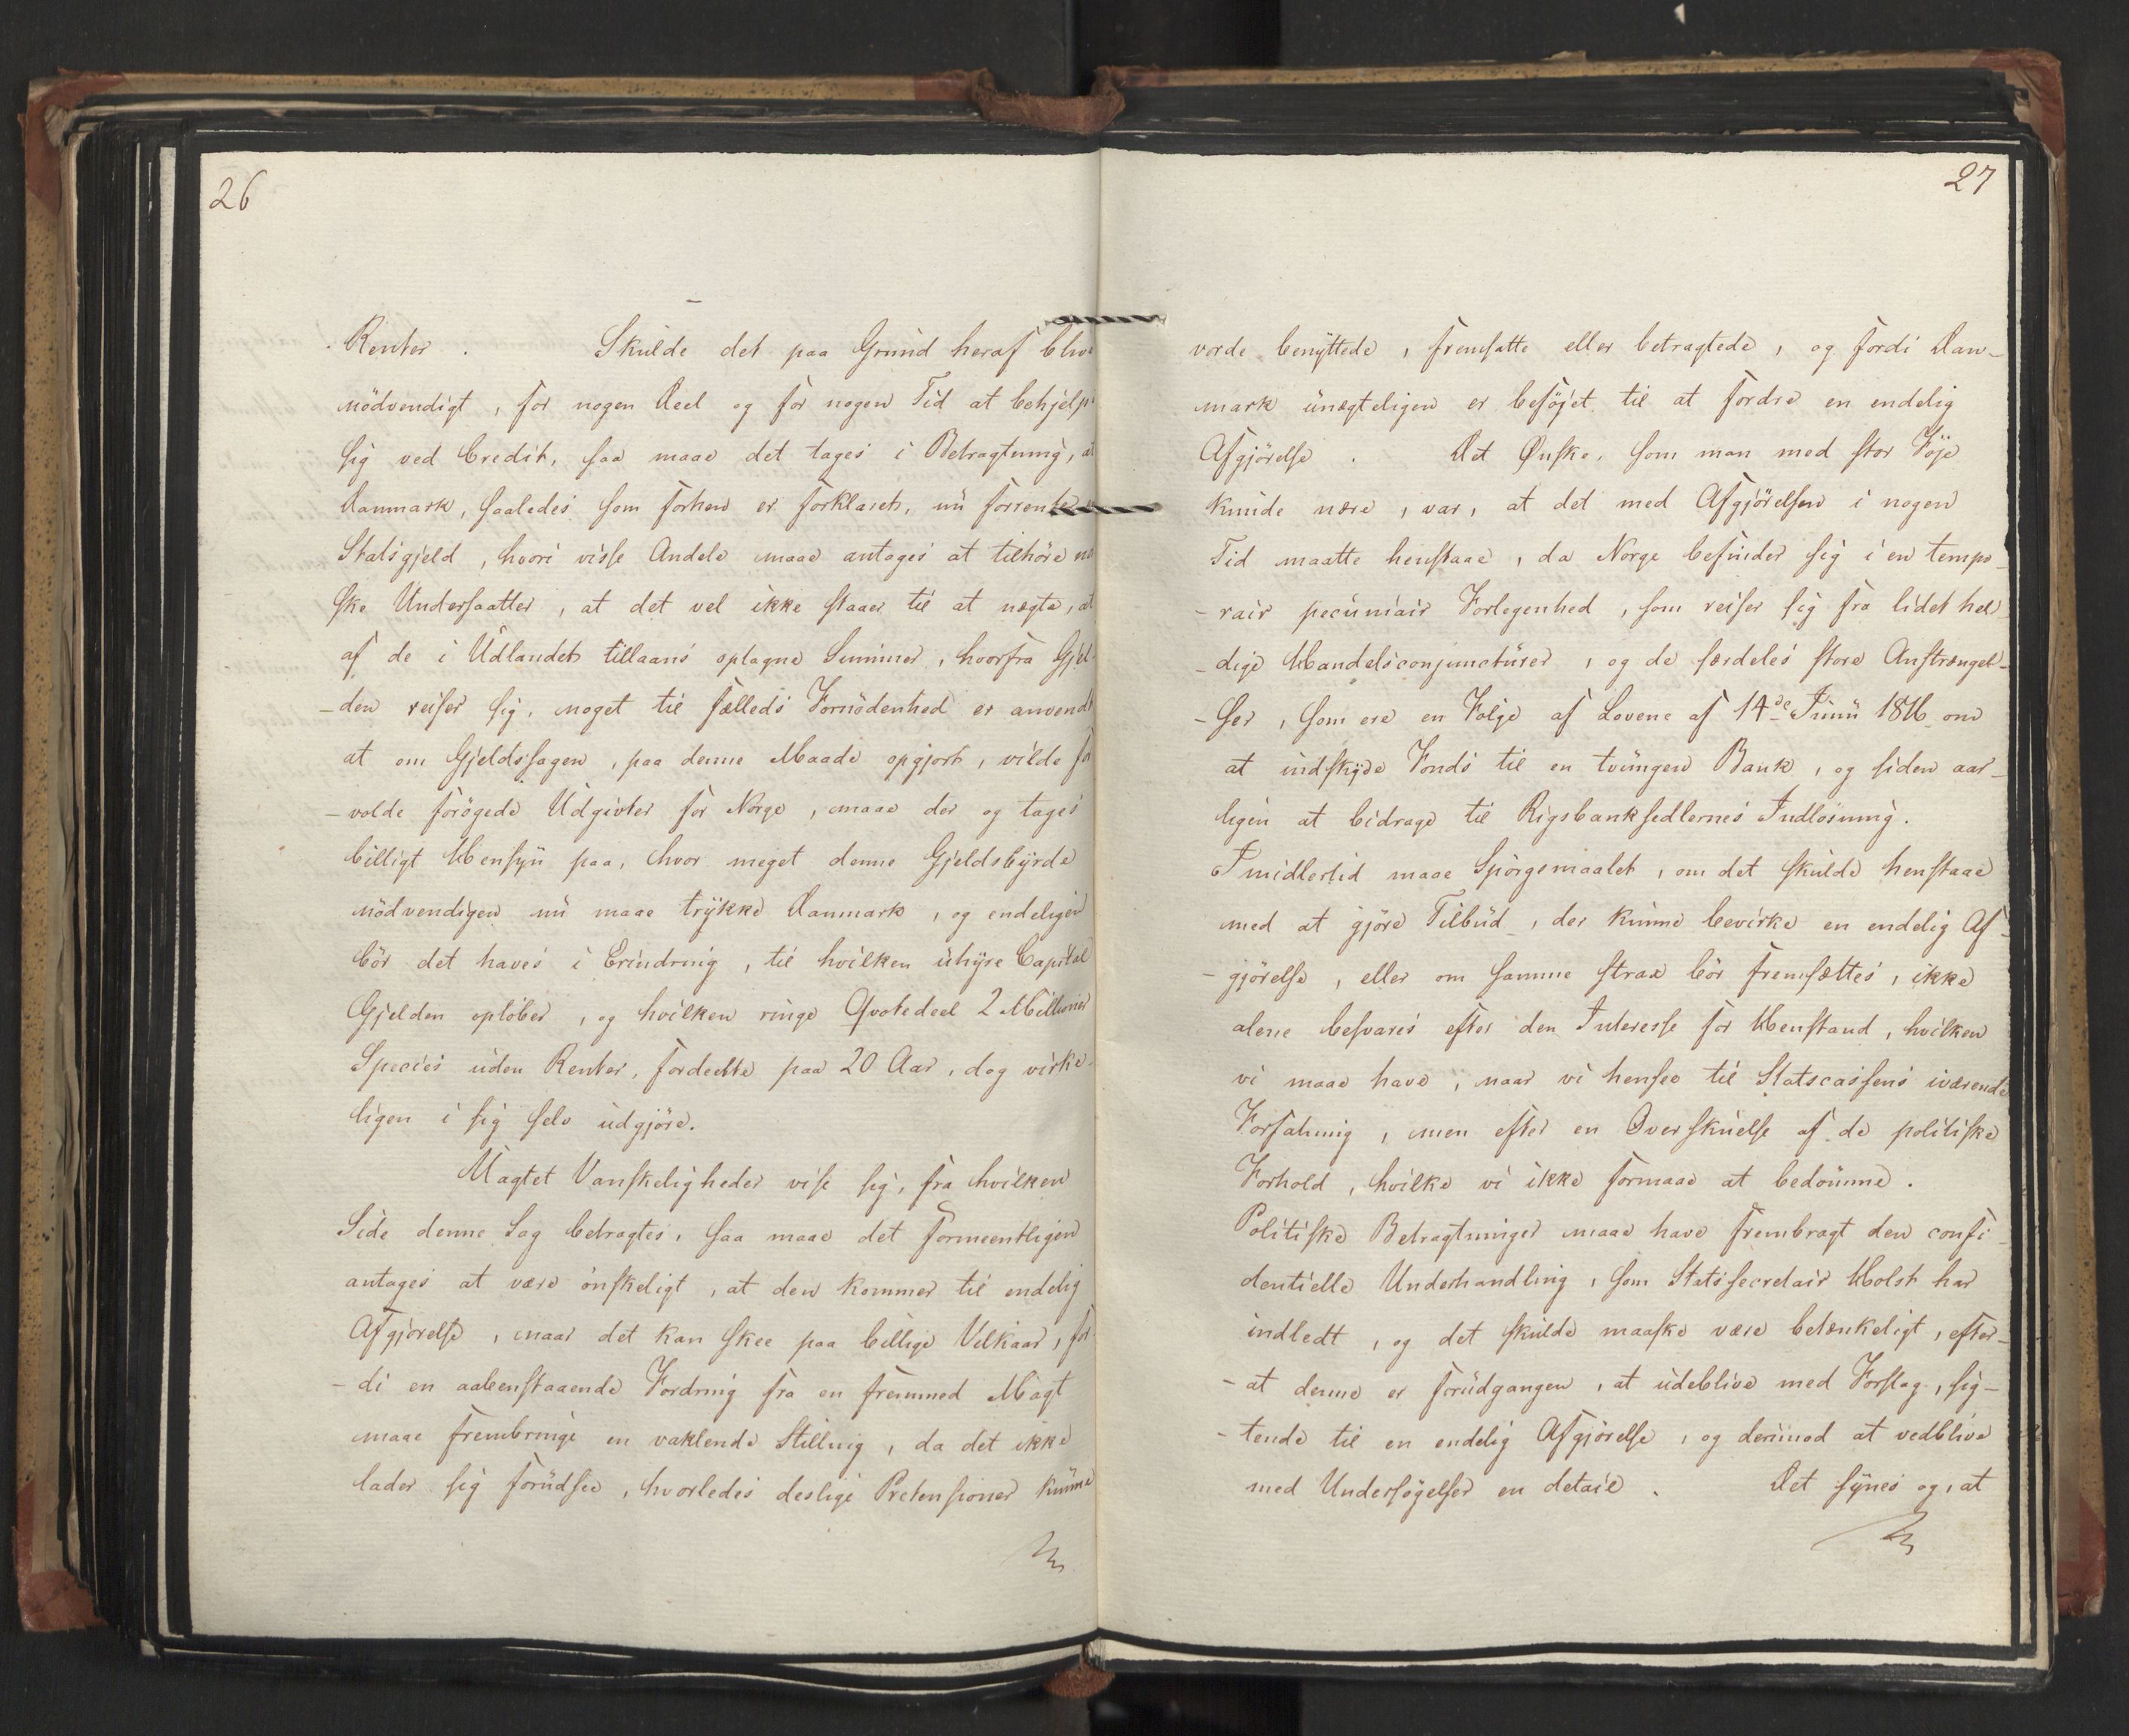 26
Renter. Skulde det paa Grund heraf blive
nödvendigt, for nogen Deel og for nogen Tid at behjelpe
sig ved Credit, saa maae det tages i Betragtning, at
Danmark, saaledes som forhen er forklaret, nu forrenter
Statsgjeld, hvori visse Andele maae antages at tilhöre no
ske Undersaatter, at det vel ikke staaer til at nægte, at
af de i Udlandet tillaans optagne Summer, hvorfra Gjel-
-den reiser sig, noget til fælleds Fornödenhed er anvendt
at om Gjeldssagen, paa denne Maade opgjort, vilde for
-volde forögede Udgivter for Norge, maae der og tages
billigt Hensyn paa, hvor meget denne Gjeldsbyrde
nödvendigen nu maae trykke Danmark, og endeligen
bör det haves i Erindring, til hvilken uhyre Capital
Gjelden oplöber, og hvilken ringe Qvotedeel 2 Millioner
Species uden Renter, fordeelte paa 20 Aar, dog virke-
ligen i sig selv udgjöre.
Uagtet Vanskeligheder vise sig, fra hvilken
Side denne Sag betragtes, saa maae det formeentligen
antages at være önskeligt, at den kommer til endelig
Afgjörelse, naar det kan skee paa billige Vilkaar, for
-di en aabenstaaende Fordring fra en fremmed Magt
maae frembringe en vaklende Stilling, da det ikke
lader sig forudsee, hvorledes deslige Pretensioner kunne
27
vorde benyttede, fremsatte eller betragtede, og fordi Dan-
mark unegteligen er beföjet til at fordre en endelig
Afgjörelse. Det Ønske, som man med stor Föje
kunde nære, var, at det med Afgjörelsen i nogen
Tid maatte henstaae, da Norge befinder sig i en tempo-
-rair pecuniair Forlegenhed, som reiser sig fra lidet hel
-dige Handelsconjuncturer, og de særdeles store Anstrængel-
-ser, som ere en Fölge af Lovene af 14de Junii 1816 om
at indskyde Fonds til en tvungen Bank, og siden aar-
ligen at bidrage til Rigsbanksedlernes Indlösning.
Imidlertid maae Spörgsmaalet, om det skulde henstaae
med at gjöre Tilbud, der kunne bevirke en endelig Af-
-gjörelse, eller om samme strax bör fremsættes, ikke
alene besvares efter den Interesse for Henstand, hvilken
vi maae have, naar vi hensee til Statscassens iværende
Forfatning, men efter en Overskuelse af de politiske
Forhold, hvilke vi ikke formaae at bedömme.
Politiske Betragtninger maae have frembragt den confi-
dentielle Underhandling, som Statssecretair Holst har
indledt, og det skulde maaske være betænkeligt, efter-
-at denne er forudgangen, at udeblive med Forslag, sig-
-tende til en endelig Afgjörelse, og derimod at vedblive
med Undersögelser en detail. Det synes og, at